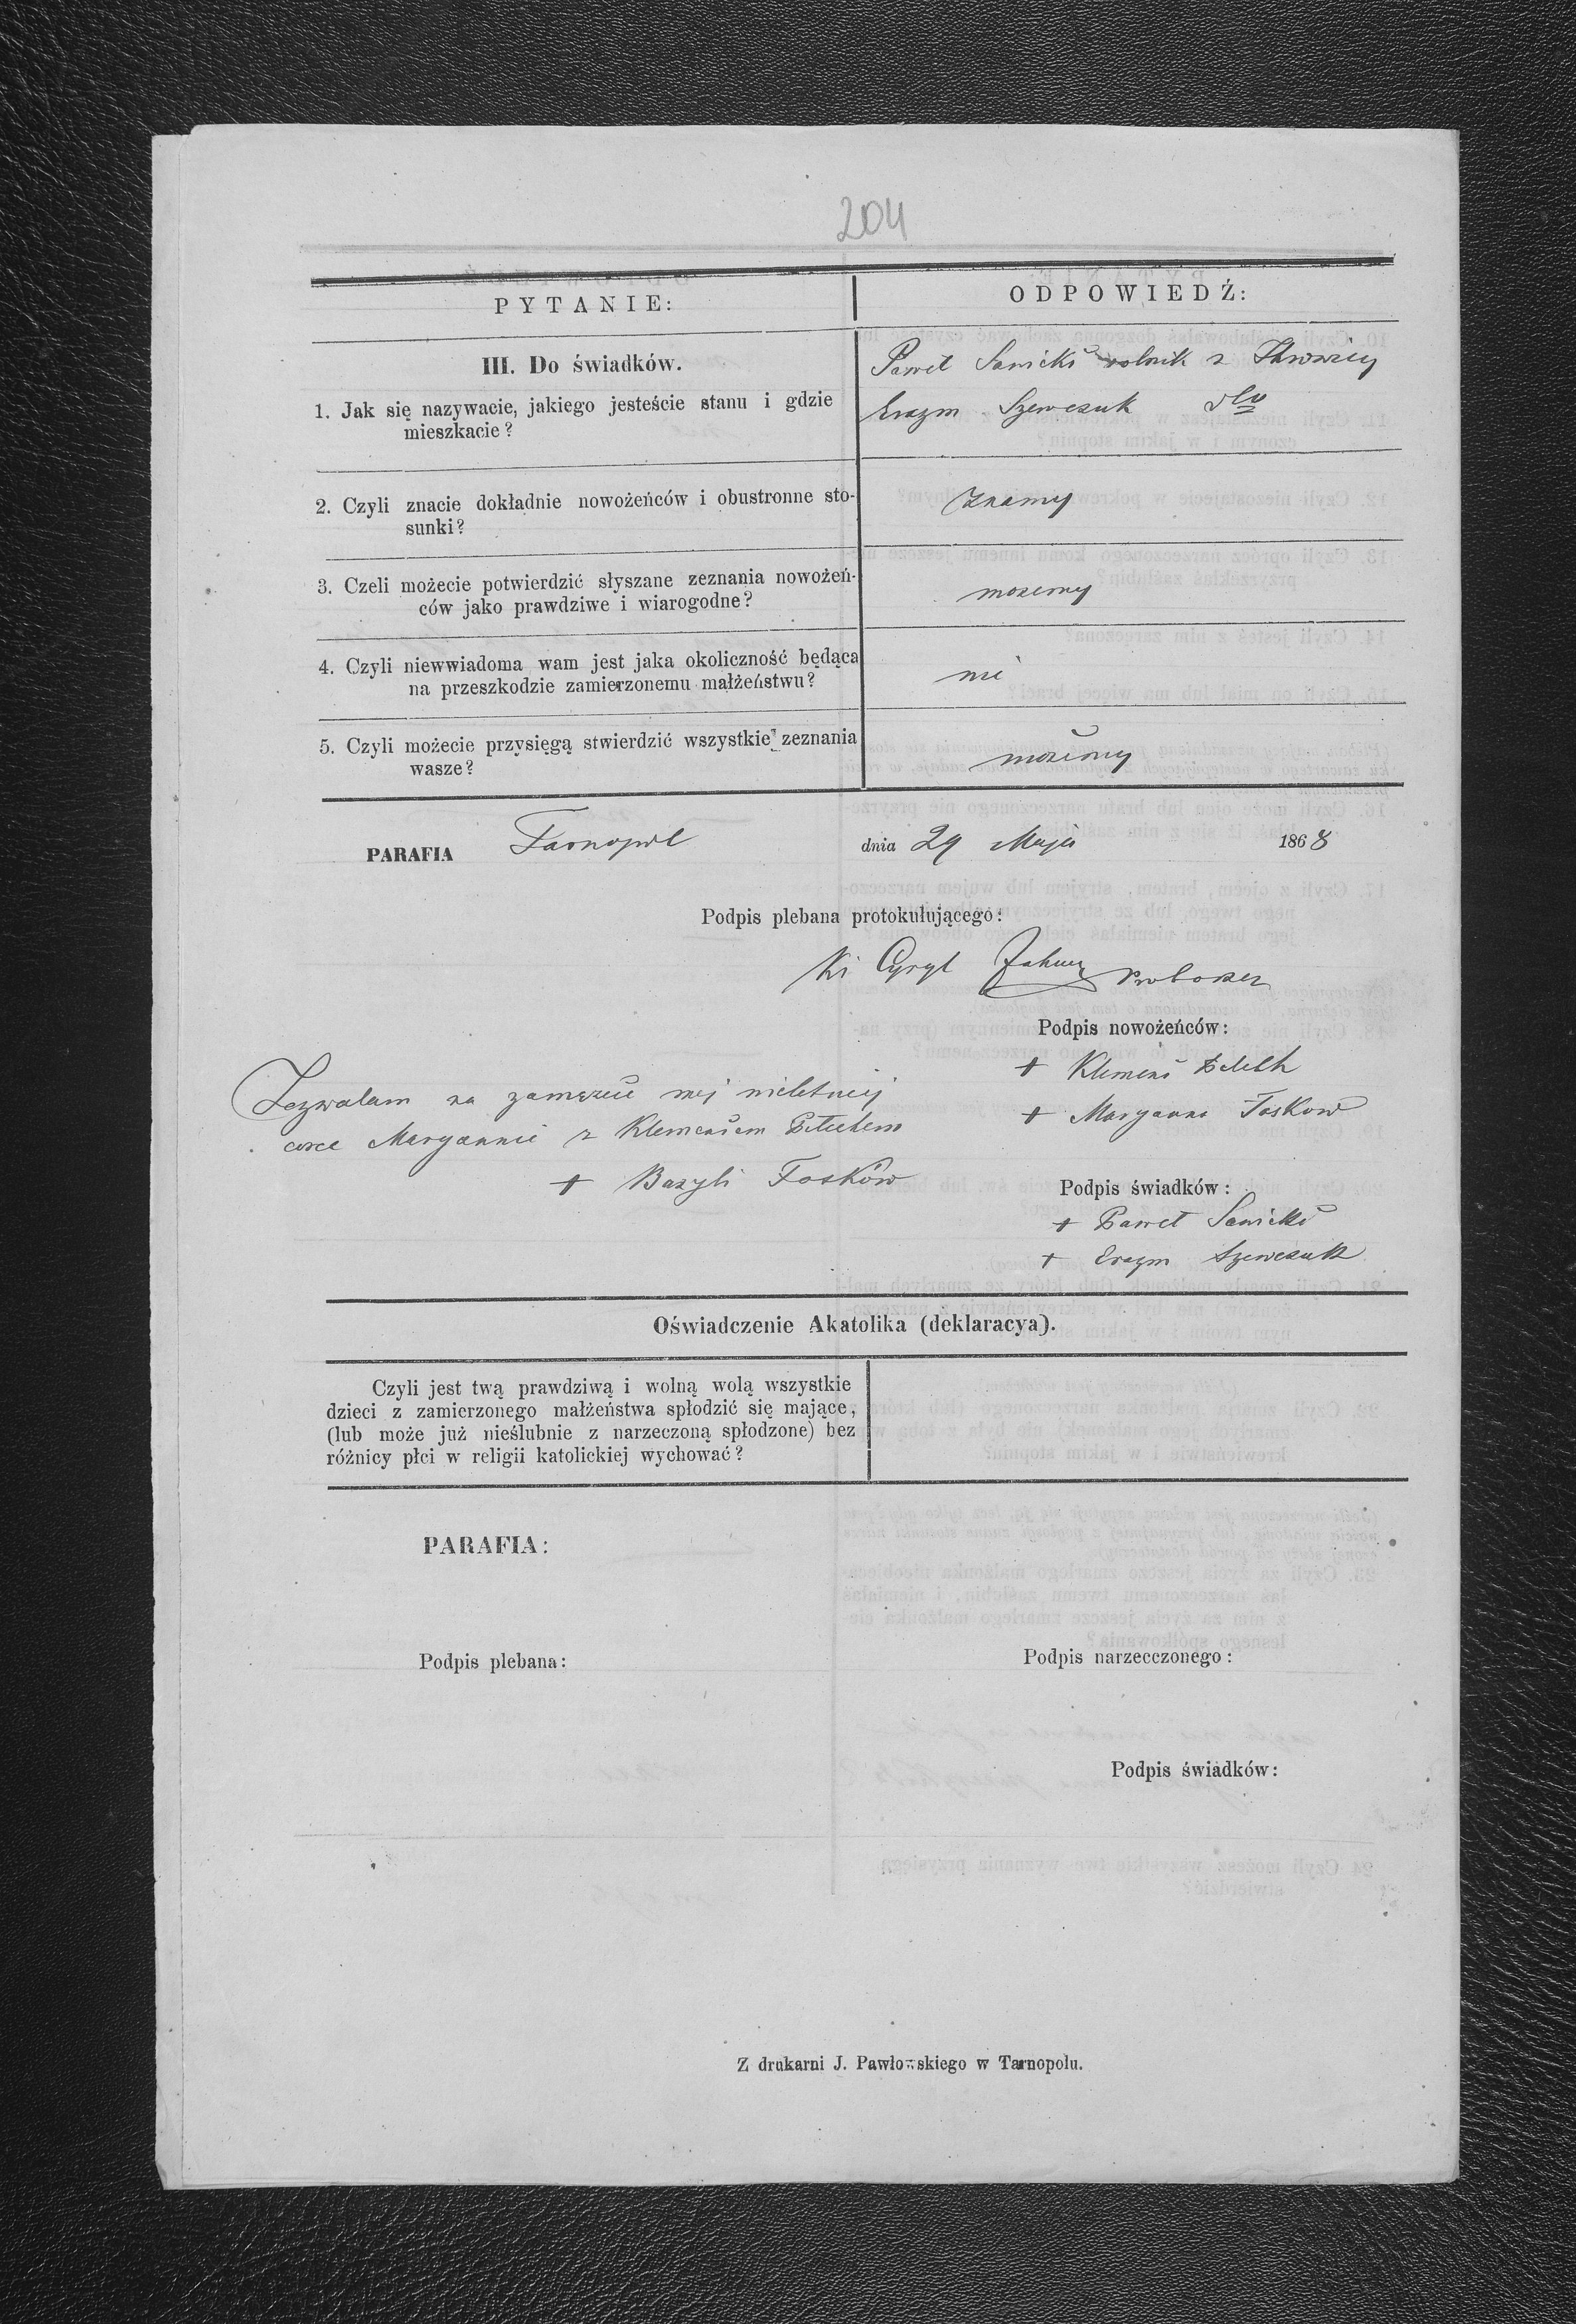 204
PYTANIE:
ODPOWIEDŹ:
III. Do świadków.
1. Jak się nazywacie, jakiego jesteście stanu i gdzie
mieszkacie?
Paweł Sawicki rolnik z
Erazm Szewczuk dto
2. Czyli znacie dokładnie nowożeńców i obustronne sto-
sunki?
znamy
3. Czeli możecie potwierdzić słyszane zeznania nowożeń-
ców jako prawdziwe i wiarogodne?
mozemy
4. Czyli niewwiadoma wam jest jaka okoliczność będąca
na przeszkodzie zamierzonemu małżeństwu?
nie
5. Czyli możecie przysięgą stwierdzić wszystkie zeznania
wasze?
możemy
PARAFIA Tarnopol dnia 29 Maja 1868
Podpis plebana protokułującego:
Cyryl
Podpis nowożeńców:
+ Klemens
+ Maryanna Toskow
Zezwalam na zamęzcie mej nieletniej
corce Maryannie z Klemensem
+ Bazyli Toskow
Podpis świadków:
+ Paweł Sawicki
+ Erazm Szewczuk
Oświadczenie Akatolika (deklaracya).
Czyli jest twą prawdziwą i wolną wolą wszystkie
dzieci z zamierzonego małżeństwa spłodzić się mające,
(lub może już nieślubnie z narzeczoną spłodzone) bez
różnicy płci w religii katolickiej wychować?
PARAFIA:
Podpis plebana:
Podpis narzecczonego:
Podpis świadków:
Z drukarni J. Pawłowskiego w Tarnopolu.